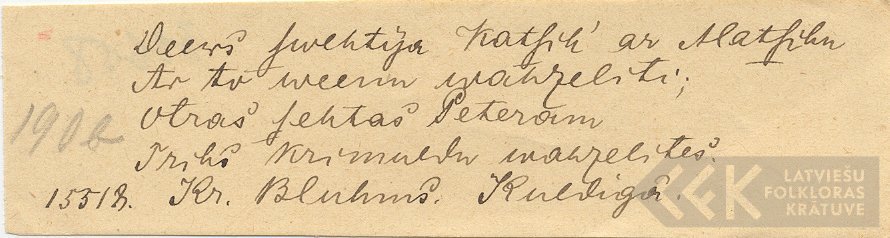 Deews swehtija Katsih' ar Matsihu
Ar to weenu wahzeliti;
Otras sehtas Peteram
Trihs krimuldu wahzelites.
1906
15518. Kr. Bluhms. Kuldigā.
LATVIEŠU
FOLKLORAS
KRĀTUVE